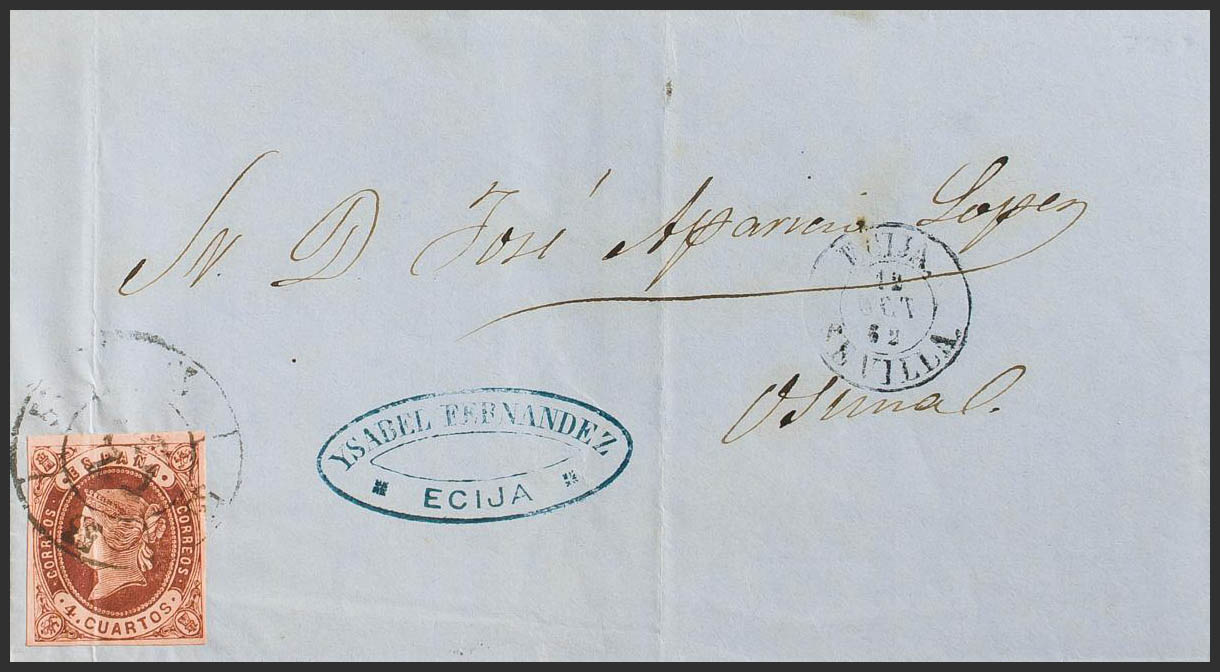 Sr. D. José Aparicio Lopez
ECIJA
12
OCT
62
SEVILLA.
Osuna
YSABEL FERNANDEZ
ECIJA
ESPAÑA
CORREOS
CORREOS
4. CUARTOS.